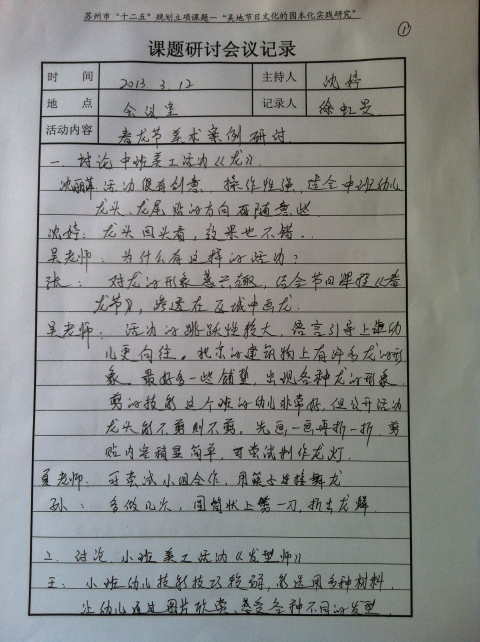 苏州市“十二五”规划立项课题—“吴地节日文化的园本化实践研究”
①
课题研讨会议记录
时 间 2013. 3. 12 主持人 沈婷
地 点 会议室 记录人 徐虹旻
活动内容 春龙节美术案例研讨.
一. 讨论中班美工活动《龙》.
沈丽萍: 活动很有创意. 操作性强, 适合中班幼儿
龙头、龙尾贴的方向再随意些.
沈婷: 龙头回头看, 效果也不错..
吴老师: 为什么有这样的活动?
张: 对龙的形象感兴趣, 结合节日课程《春
龙节》, 渗透在区域中画龙.
吴老师: 活动的跳跃性较大, 语言引导上要幼
儿更向往. 北京的建筑物上有许多龙的形
象. 最好多一些铺垫, 出现各种龙的形象
剪的技能这个班的幼儿非常好, 但公开活动
龙头能不剪则不剪. 先画一画再折一折. 剪
贴内容稍显简单, 可尝试制作龙灯.
夏老师: 可尝试小组合作, 用筷子连接舞龙
孙: 多做几次, 圆筒状上剪一刀, 折出龙鳞
2. 讨论小班美工活动《发型师》
王: 小班幼儿技能技巧较弱, 常运用多种材料.
让幼儿通过图片欣赏、感受各种不同的发型.